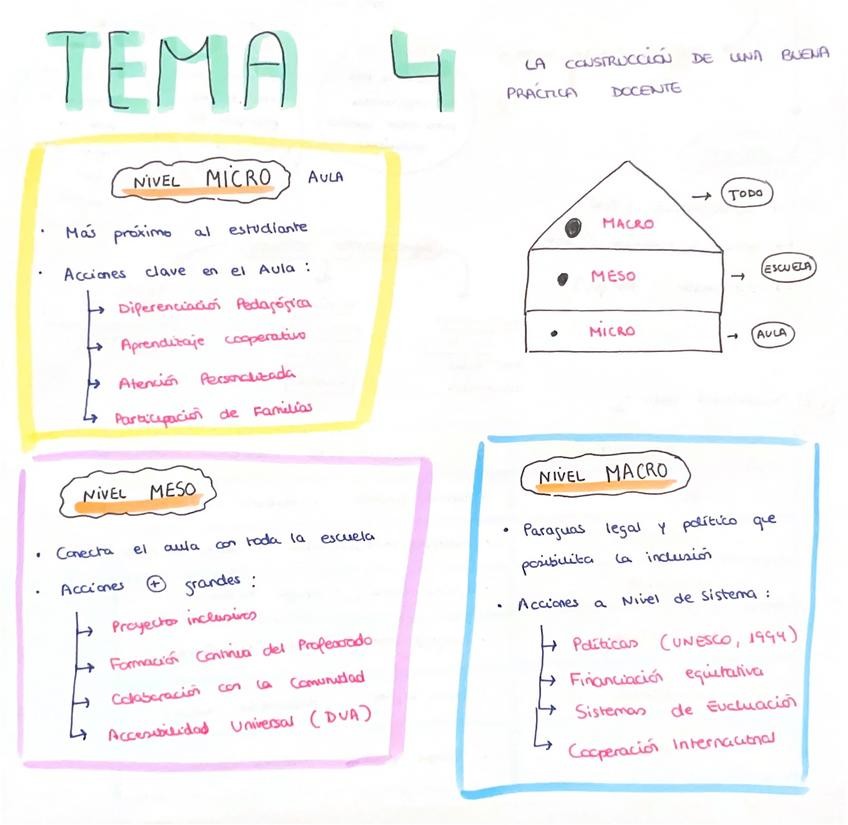 TEMA 4
LA CONSTRUCCIÓN DE UNA BUENA
PRÁCTICA DOCENTE
NIVEL MICRO AULA
· Más próximo al estudiante
· Acciones clave en el Aula :
→ Diferenciación Pedagógica
→ Aprendizaje cooperativo
→ Atención Personalizada
→ Participación de Familias
MACRO → TODO
MESO → ESCUELA
MICRO → AULA
NIVEL MESO
· Conecta el aula con toda la escuela
· Acciones + grandes :
→ Proyectos inclusivos
→ Formación Continua del Profesorado
→ Colaboración con la Comunidad
→ Accesibilidad Universal (DUA)
NIVEL MACRO
· Paraguas legal y político que
posibilita la inclusión
· Acciones a Nivel de Sistema :
→ Políticas (UNESCO, 1994)
→ Financiación equitativa
→ Sistemas de Evaluación
→ Cooperación Internacional